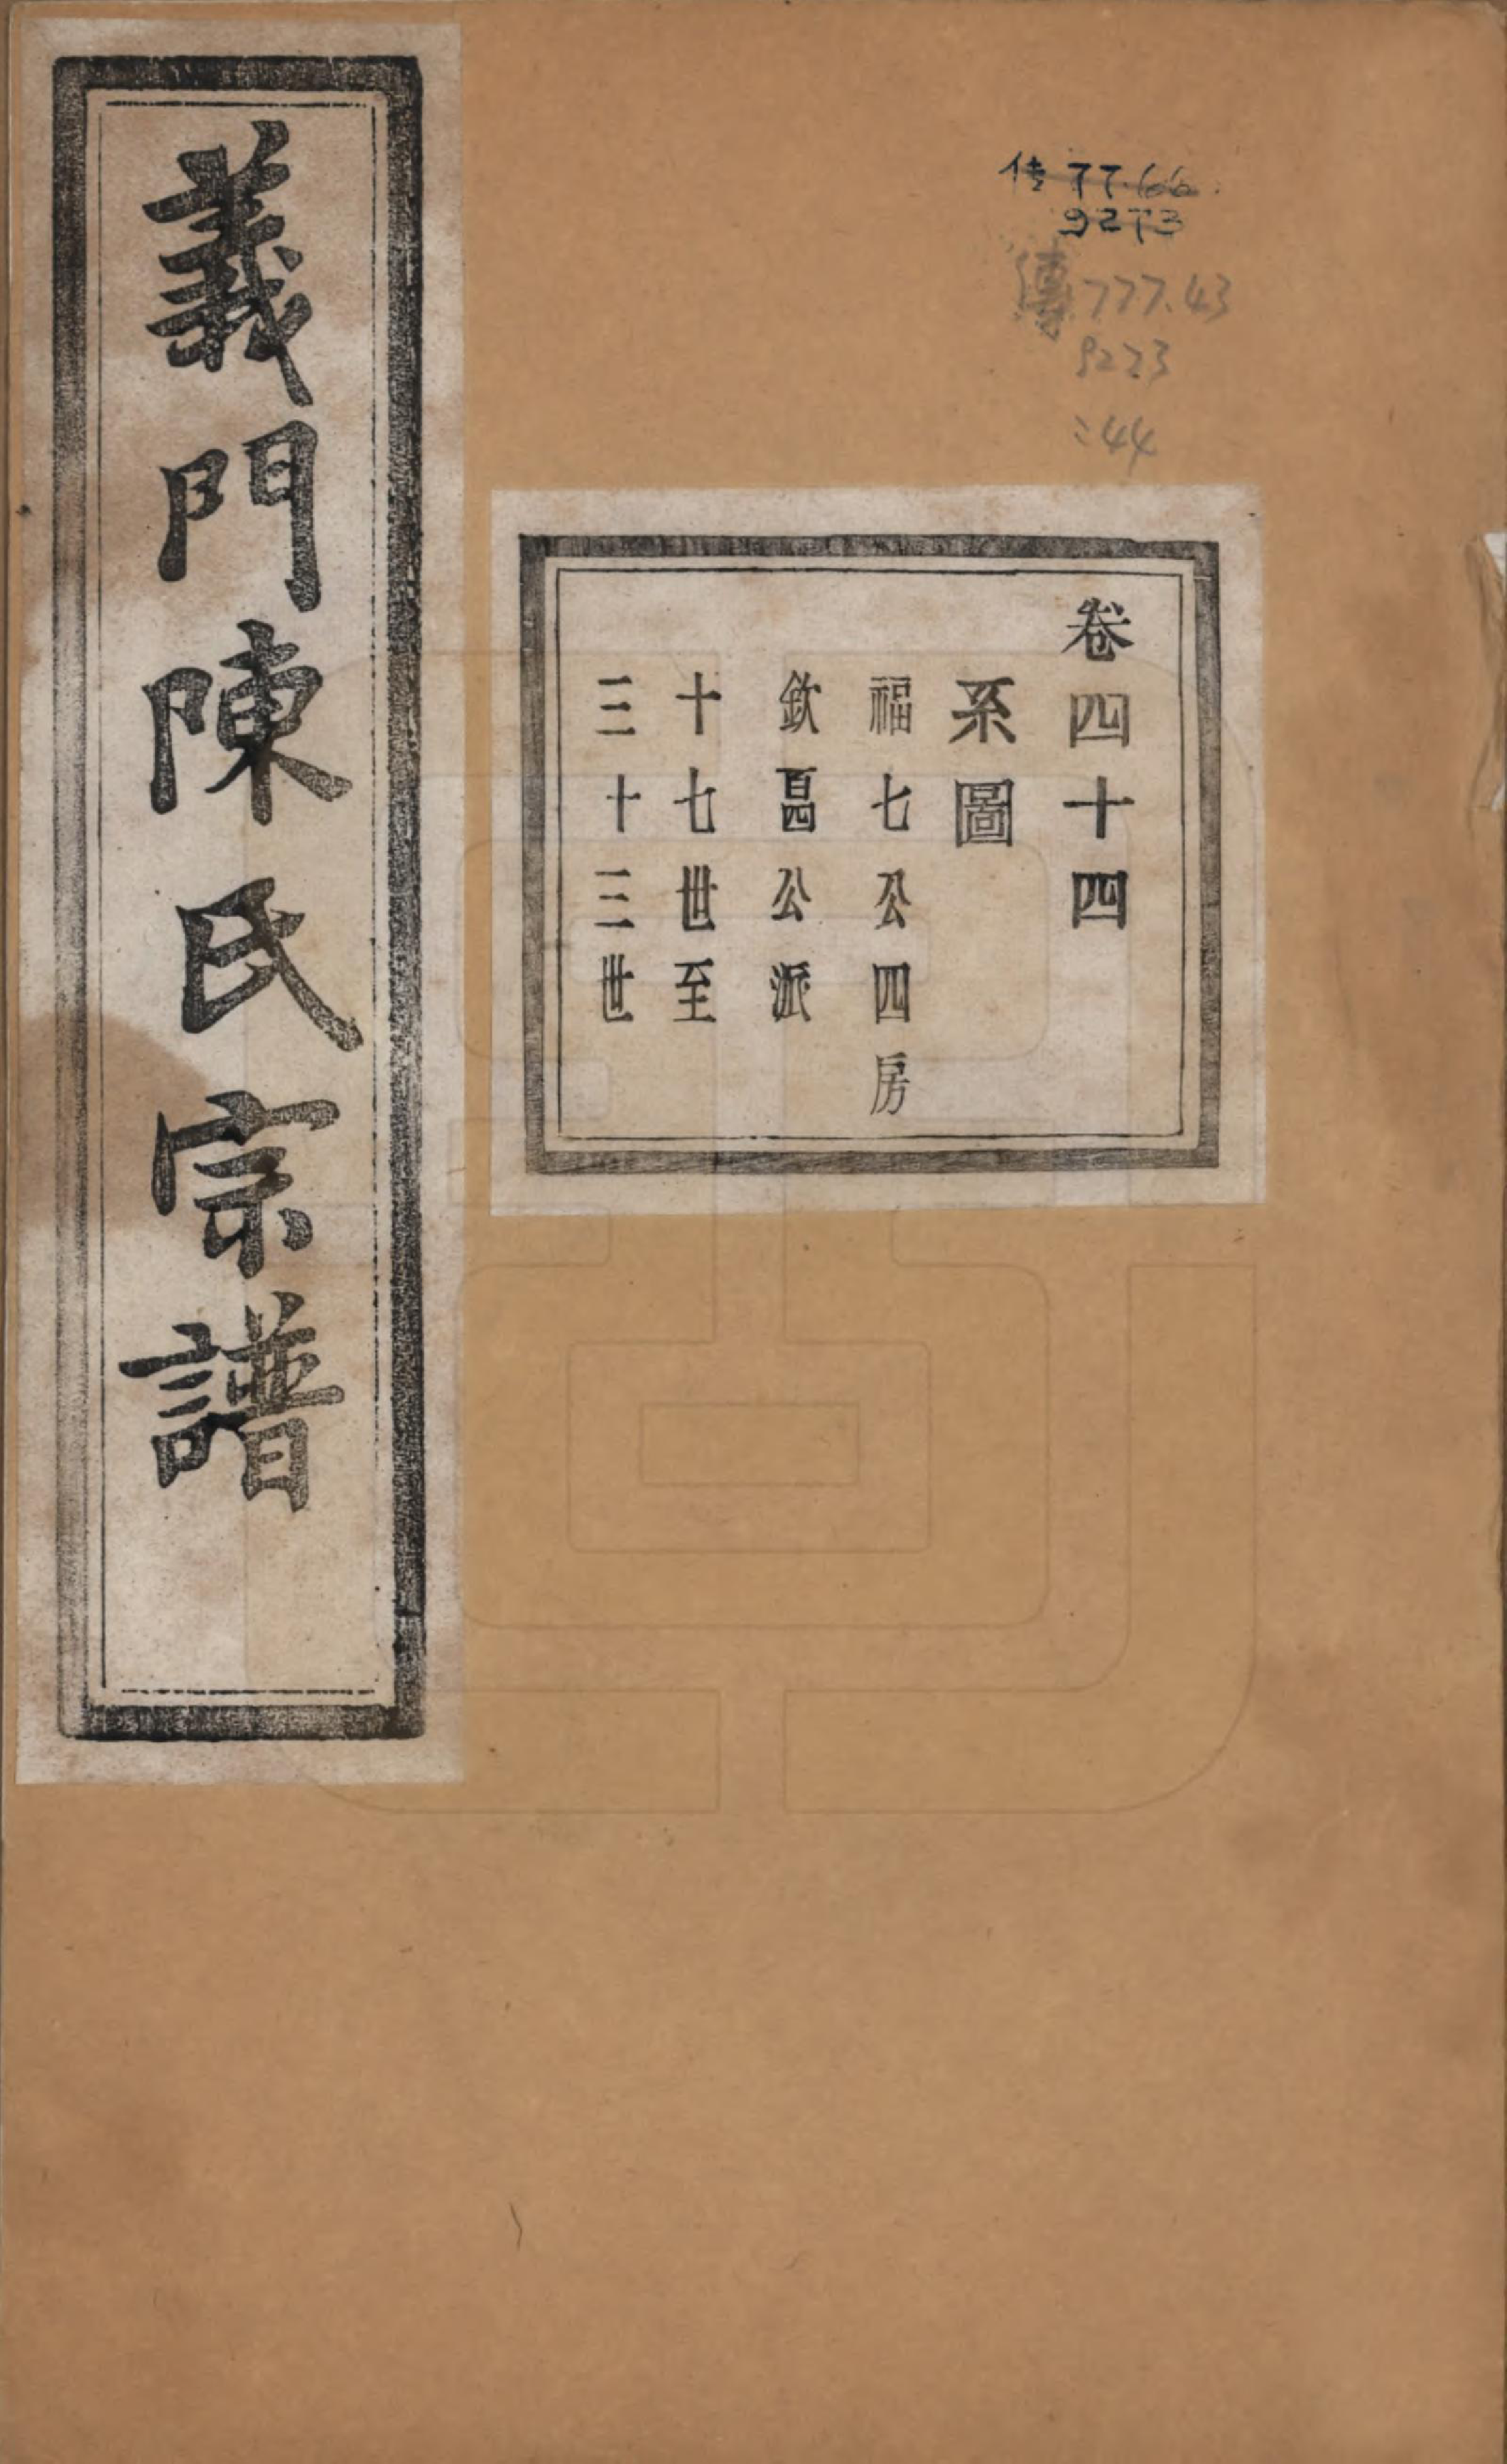 義門陳氏宗譜
传 77.66
9273
傳 777.43
9273
:44
卷四十四
系圖
福七公四房
欽百四公派
十七世至
三十三世